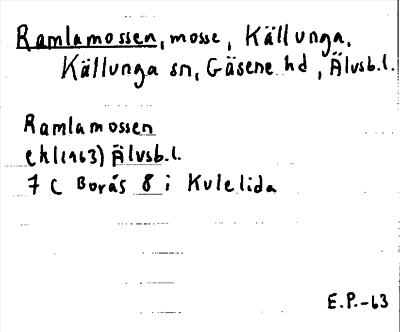 Ramlamossen, mosse, Källunga.
Källunga sn, Gäsene hd, Älvsb.l.
Ramlamossen
ehl(1963) Älvsb.l.
7 C Borås 8 i Kulelida
E.P.-63